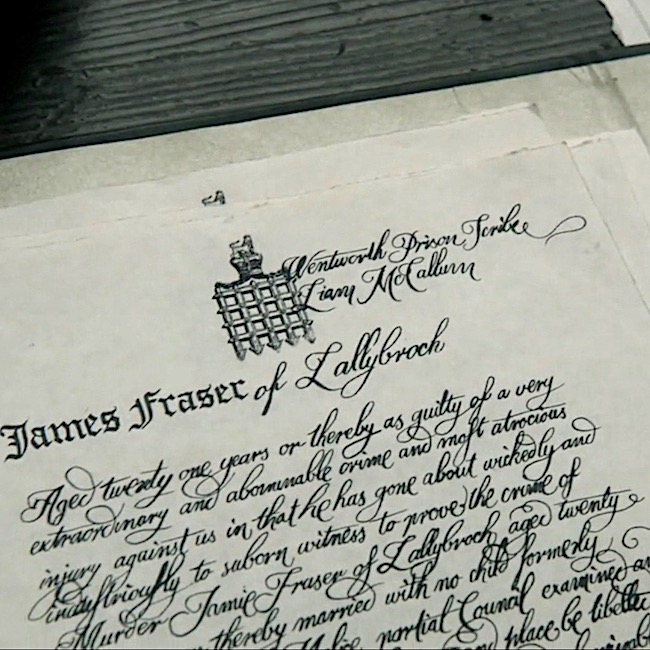 Wentworth Prison Scribe
Liam McCallum
James Fraser of Lallybroch
Aged twenty one years or thereby as guilty of a very
extraordinary and abominable crime and most atrocious
injury against us in that he has gone about wickedly and
industriously to suborn witness to prove the crime of
Murder Jamie Fraser of Lallybroch aged twenty
thereby married with no child formerly
partial Council examined
place be